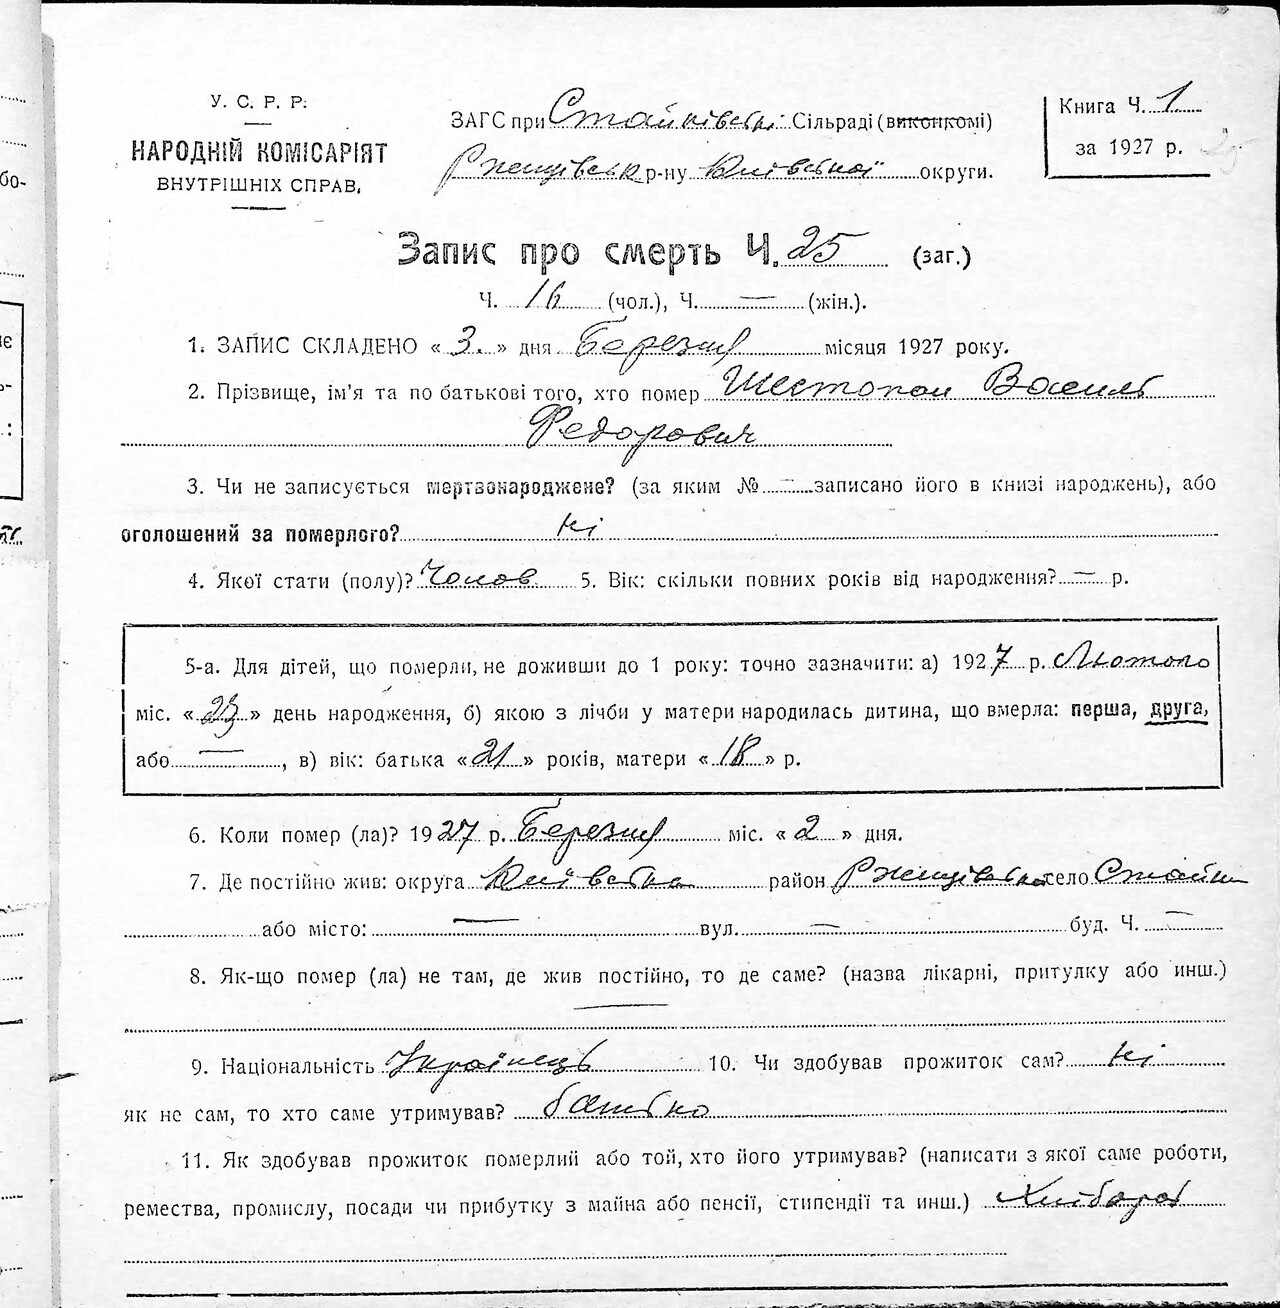 У. С. Р. Р.
НАРОДНІЙ КОМІСАРІЯТ
ВНУТРІШНІХ СПРАВ.
ЗАГС при Стайківські Сільраді (виконкомі)
Ржищівськ р-ну Київської округи.
Книга Ч. 1
за 1927 р. 25
бо-
Запис про смерть Ч. 25 (заг.)
Ч. 16 (чол.), Ч. — (жін.).
1. ЗАПИС СКЛАДЕНО « 3. » дня Березня місяця 1927 року.
2. Прізвище, ім’я та по батькові того, хто помер Шестопал Василь
Федорович
3. Чи не записується мертвонароджене? (за яким № — записано його в книзі народжень), або
оголошений за померлого? ні
4. Якої стати (полу)? Чолов 5. Вік: скільки повних років від народження? — р.
5-а. Для дітей, що померли, не доживши до 1 року: точно зазначити: а) 1927 р. Лютого
міс. « 23 » день народження, б) якою з лічби у матери народилась дитина, що вмерла: перша, друга,
або —, в) вік: батька « 21 » років, матери « 18 » р.
6. Коли помер (ла)? 1927 р. Березня міс. « 2 » дня.
7. Де постійно жив: округа Київська район Ржищівська село Стайки
або місто: — вул. — буд. Ч. —
8. Як-що помер (ла) не там, де жив постійно, то де саме? (назва лікарні, притулку або инш.)
—
9. Національність Українець 10. Чи здобував прожиток сам? ні
як не сам, то хто саме утримував? батько
11. Як здобував прожиток померлий або той, хто його утримував? (написати з якої саме роботи,
ремества, промислу, посади чи прибутку з майна або пенсії, стипендії та инш.) Хлібороб